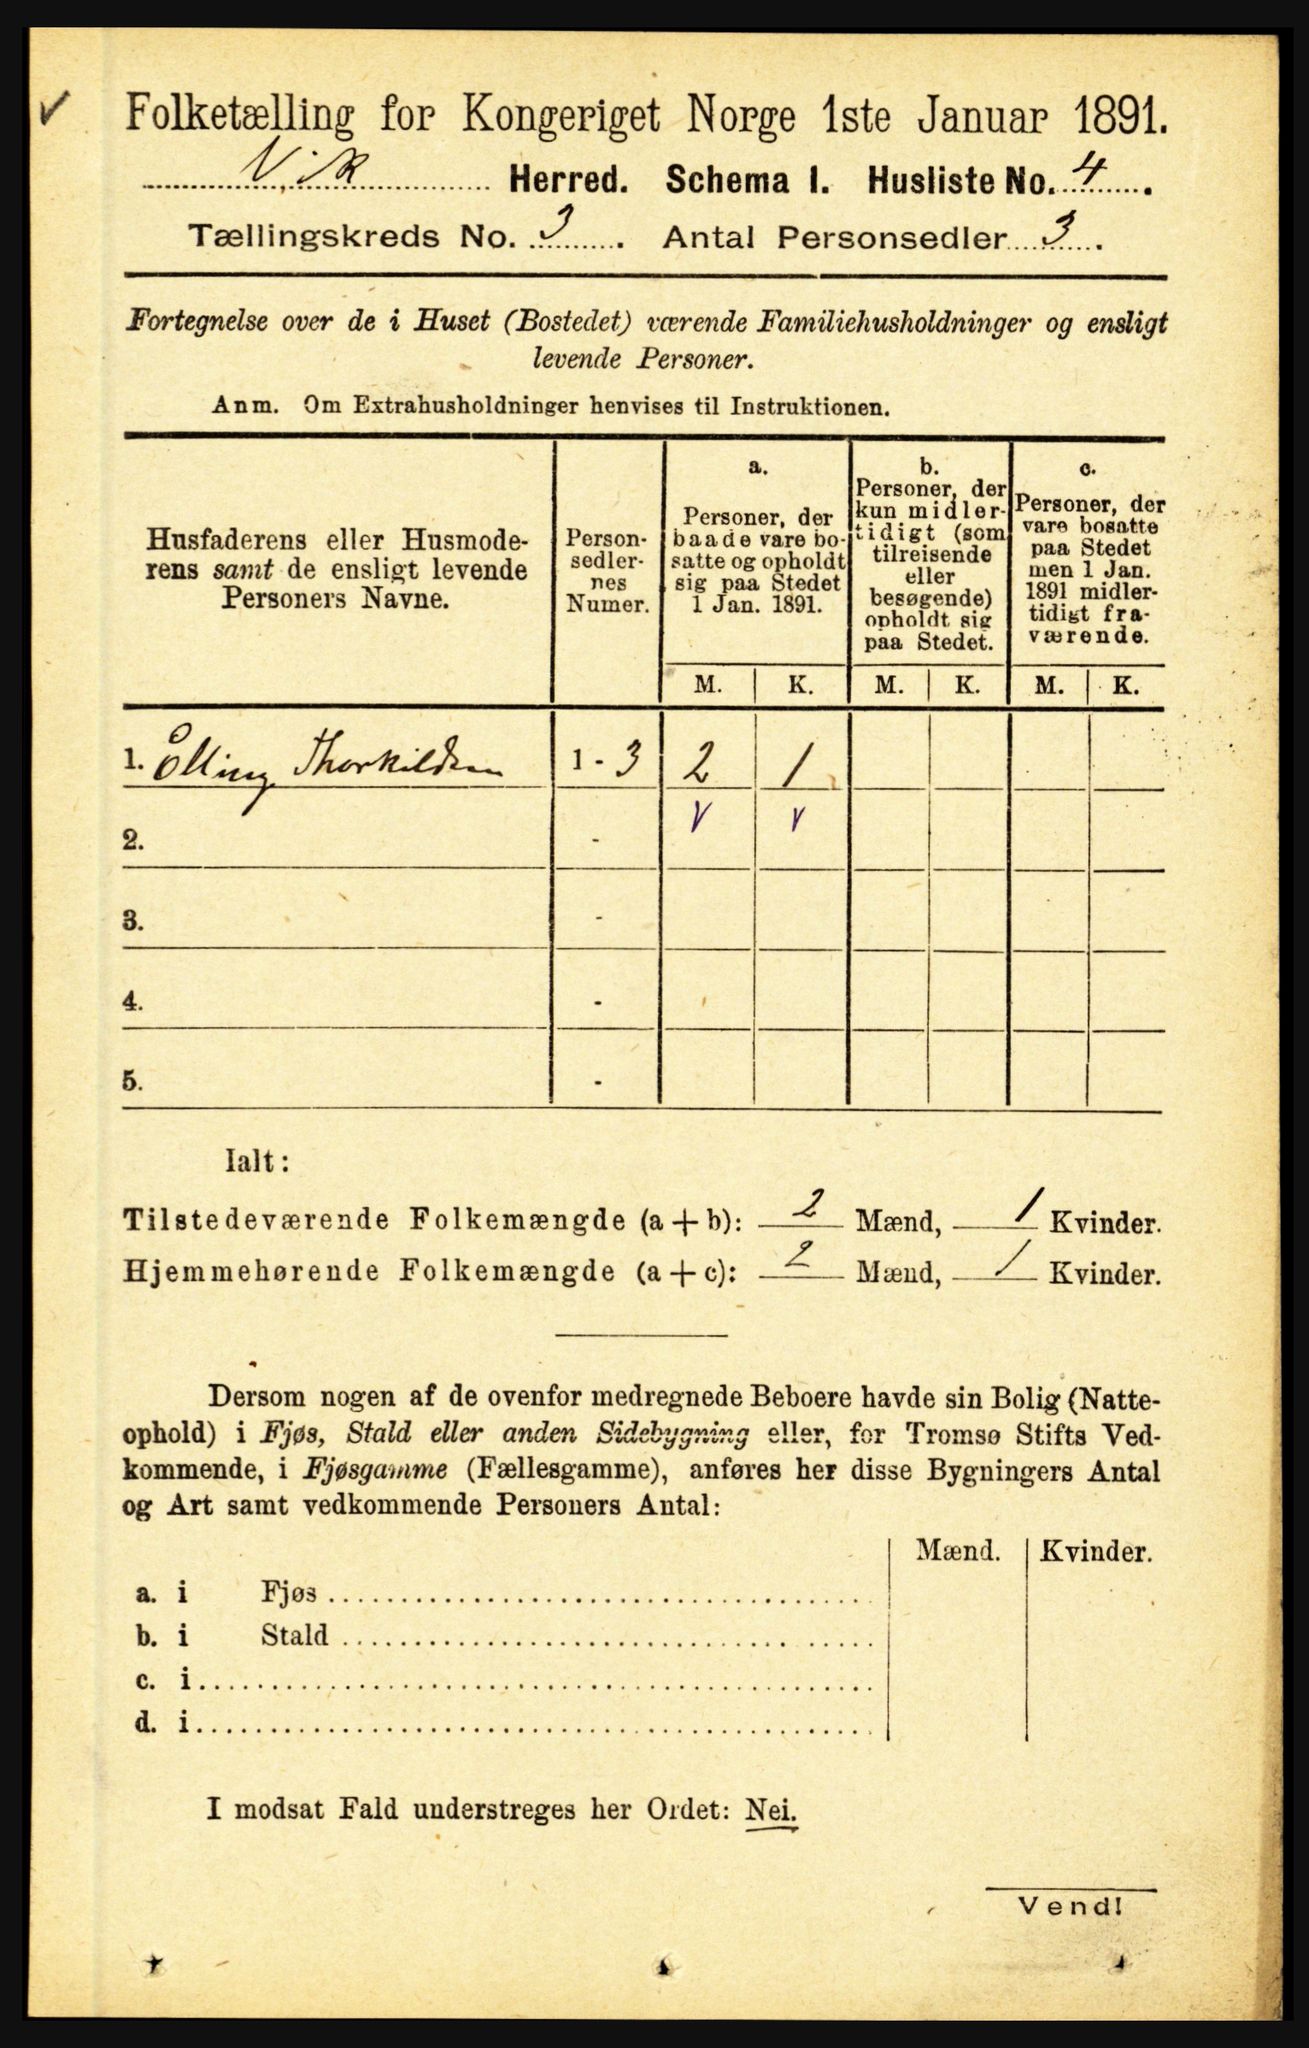 Folketælling for Kongeriget Norge 1ste Januar 1891.
Vik Herred. Schema I. Husliste No. 4.
Tællingskreds No. 3. Antal Personsedler 3.
Fortegnelse over de i Huset (Bostedet) værende Familiehusholdninger og ensligt
levende Personer.
Anm. Om Extrahusholdninger henvises til Instruktionen.
Husfaderens eller Husmode-
rens samt de ensligt levende
Personers Navne.
Person-
sedler-
nes
Numer.
a.
Personer, der
baade vare bo-
satte og opholdt
sig paa Stedet
1 Jan. 1891.
b.
Personer, der
kun midler-
tidigt (som
tilreisende
eller
besøgende)
opholdt sig
paa Stedet.
c.
Personer, der
vare bosatte
paa Stedet
men 1 Jan.
1891 midler-
tidigt fra-
værende.
M. K. M. K. M. K.
1. Olling Thorkildsen 1 - 3 2 1
2. -
3. -
4. -
5. -
Ialt:
Tilstedeværende Folkemængde (a + b): 2 Mænd, 1 Kvinder.
Hjemmehørende Folkemængde (a + c): 2 Mænd, 1 Kvinder.
Dersom nogen af de ovenfor medregnede Beboere havde sin Bolig (Natte-
ophold) i Fjøs, Stald eller anden Sidebygning eller, for Tromsø Stifts Ved-
kommende, i Fjøsgamme (Fællesgamme), anføres her disse Bygningers Antal
og Art samt vedkommende Personers Antal:
Mænd. Kvinder.
a. i Fjøs
b. i Stald
c. i
d. i
I modsat Fald understreges her Ordet: Nei.
Vend!